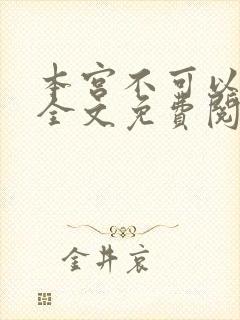 本宫不可以
全文免费阅
金井哀